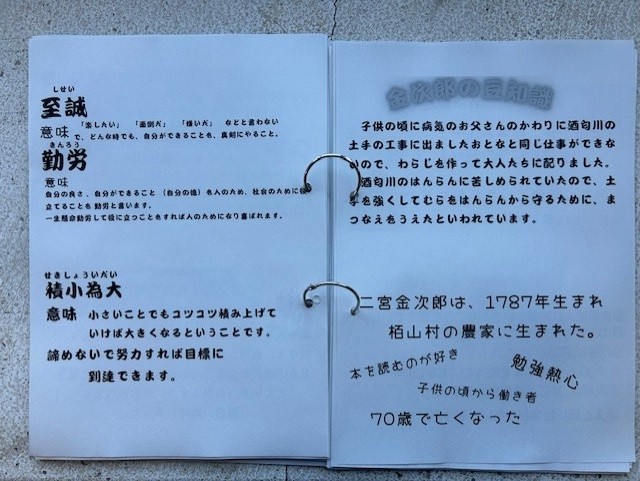 しせい
至誠
「楽したい」 「面倒だ」 「嫌いだ」 などと言わない
意味 で、どんな時でも、自分ができることを、真剣にやること。
きんろう
勤労
意味
自分の良さ、自分ができること（自分の徳）を人のため、社会のために役
立てることを 勤労と言います。
一生懸命勤労して役に立つことをすれば人のためになり喜ばれます。
せきしょういだい
積小為大
意味 小さいことでもコツコツ積み上げて
いけば大きくなるということです。
諦めないで努力すれば目標に
到達できます。
金次郎の豆知識
子供の頃に病気のお父さんのかわりに酒匂川の
土手の工事に出ましたおとなと同じ仕事ができな
いので、わらじを作って大人たちに配りました。
酒匂川のはんらんに苦しめられていたので、土
手を強くしてむらをはんらんから守るために、ま
つなえをうえたといわれています。
二宮金次郎は、1787年生まれ
栢山村の農家に生まれた。
本を読むのが好き
勉強熱心
子供の頃から働き者
70歳で亡くなった